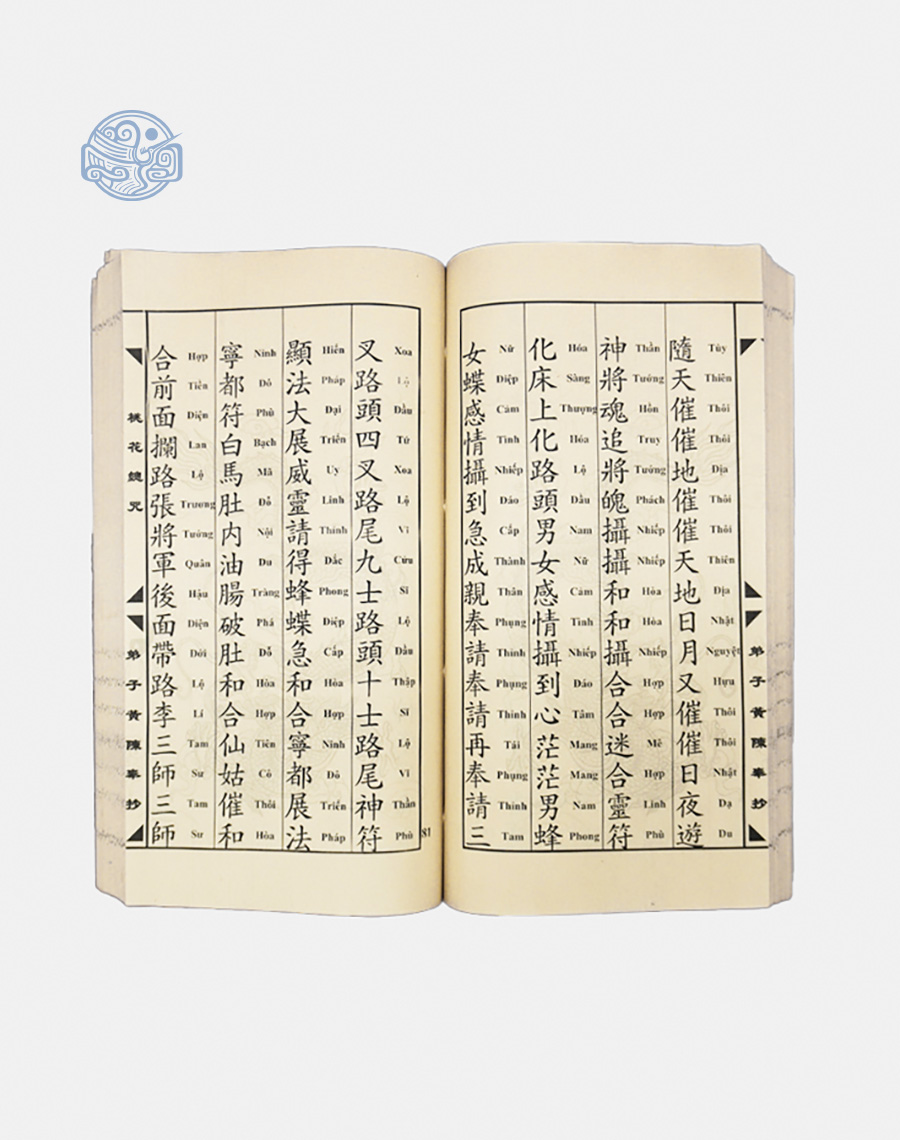 隨天催催地催催天地日月又催催日夜遊
Tùy Thiên Thôi Thôi Địa Thôi Thôi Thiên Địa Nhật Nguyệt Hựu Thôi Thôi Nhật Dạ Du
神將魂追將魄攝攝和和攝合合迷合靈符
Thần Tướng Hồn Truy Tướng Phách Nhiếp Nhiếp Hòa Hòa Nhiếp Hợp Hợp Mê Hợp Linh Phù
化床上化路頭男女感情攝到心茫茫男蜂
Hóa Sàng Thượng Hóa Lộ Đầu Nam Nữ Cảm Tình Nhiếp Đáo Tâm Mang Mang Nam Phong
女蝶感情攝到急成親奉請奉請再奉請三
Nữ Điệp Cảm Tình Nhiếp Đáo Cấp Thành Thân Phụng Thỉnh Phụng Thỉnh Tái Phụng Thỉnh Tam
弟子黃陳奉抄
81
叉路頭四叉路尾九士路頭十士路尾神符
Xoa Lộ Đầu Tứ Xoa Lộ Vĩ Cửu Sĩ Lộ Đầu Thập Sĩ Lộ Vĩ Thần Phù
顯法大展威靈請得蜂蝶急和合寧都展法
Hiển Pháp Đại Triển Uy Linh Thỉnh Đắc Phong Điệp Cấp Hòa Hợp Ninh Đô Triển Pháp
寧都符白馬肚内油腸破肚和合仙姑催和
Ninh Đô Phù Bạch Mã Đỗ Nội Du Tràng Phá Đỗ Hòa Hợp Tiên Cô Thôi Hòa
合前面攔路張將軍後面帶路李三師三師
Hợp Tiền Diện Lan Lộ Trương Tướng Quân Hậu Diện Dới Lộ Lí Tam Sư Tam Sư
桃花總咒
弟子黃陳奉抄